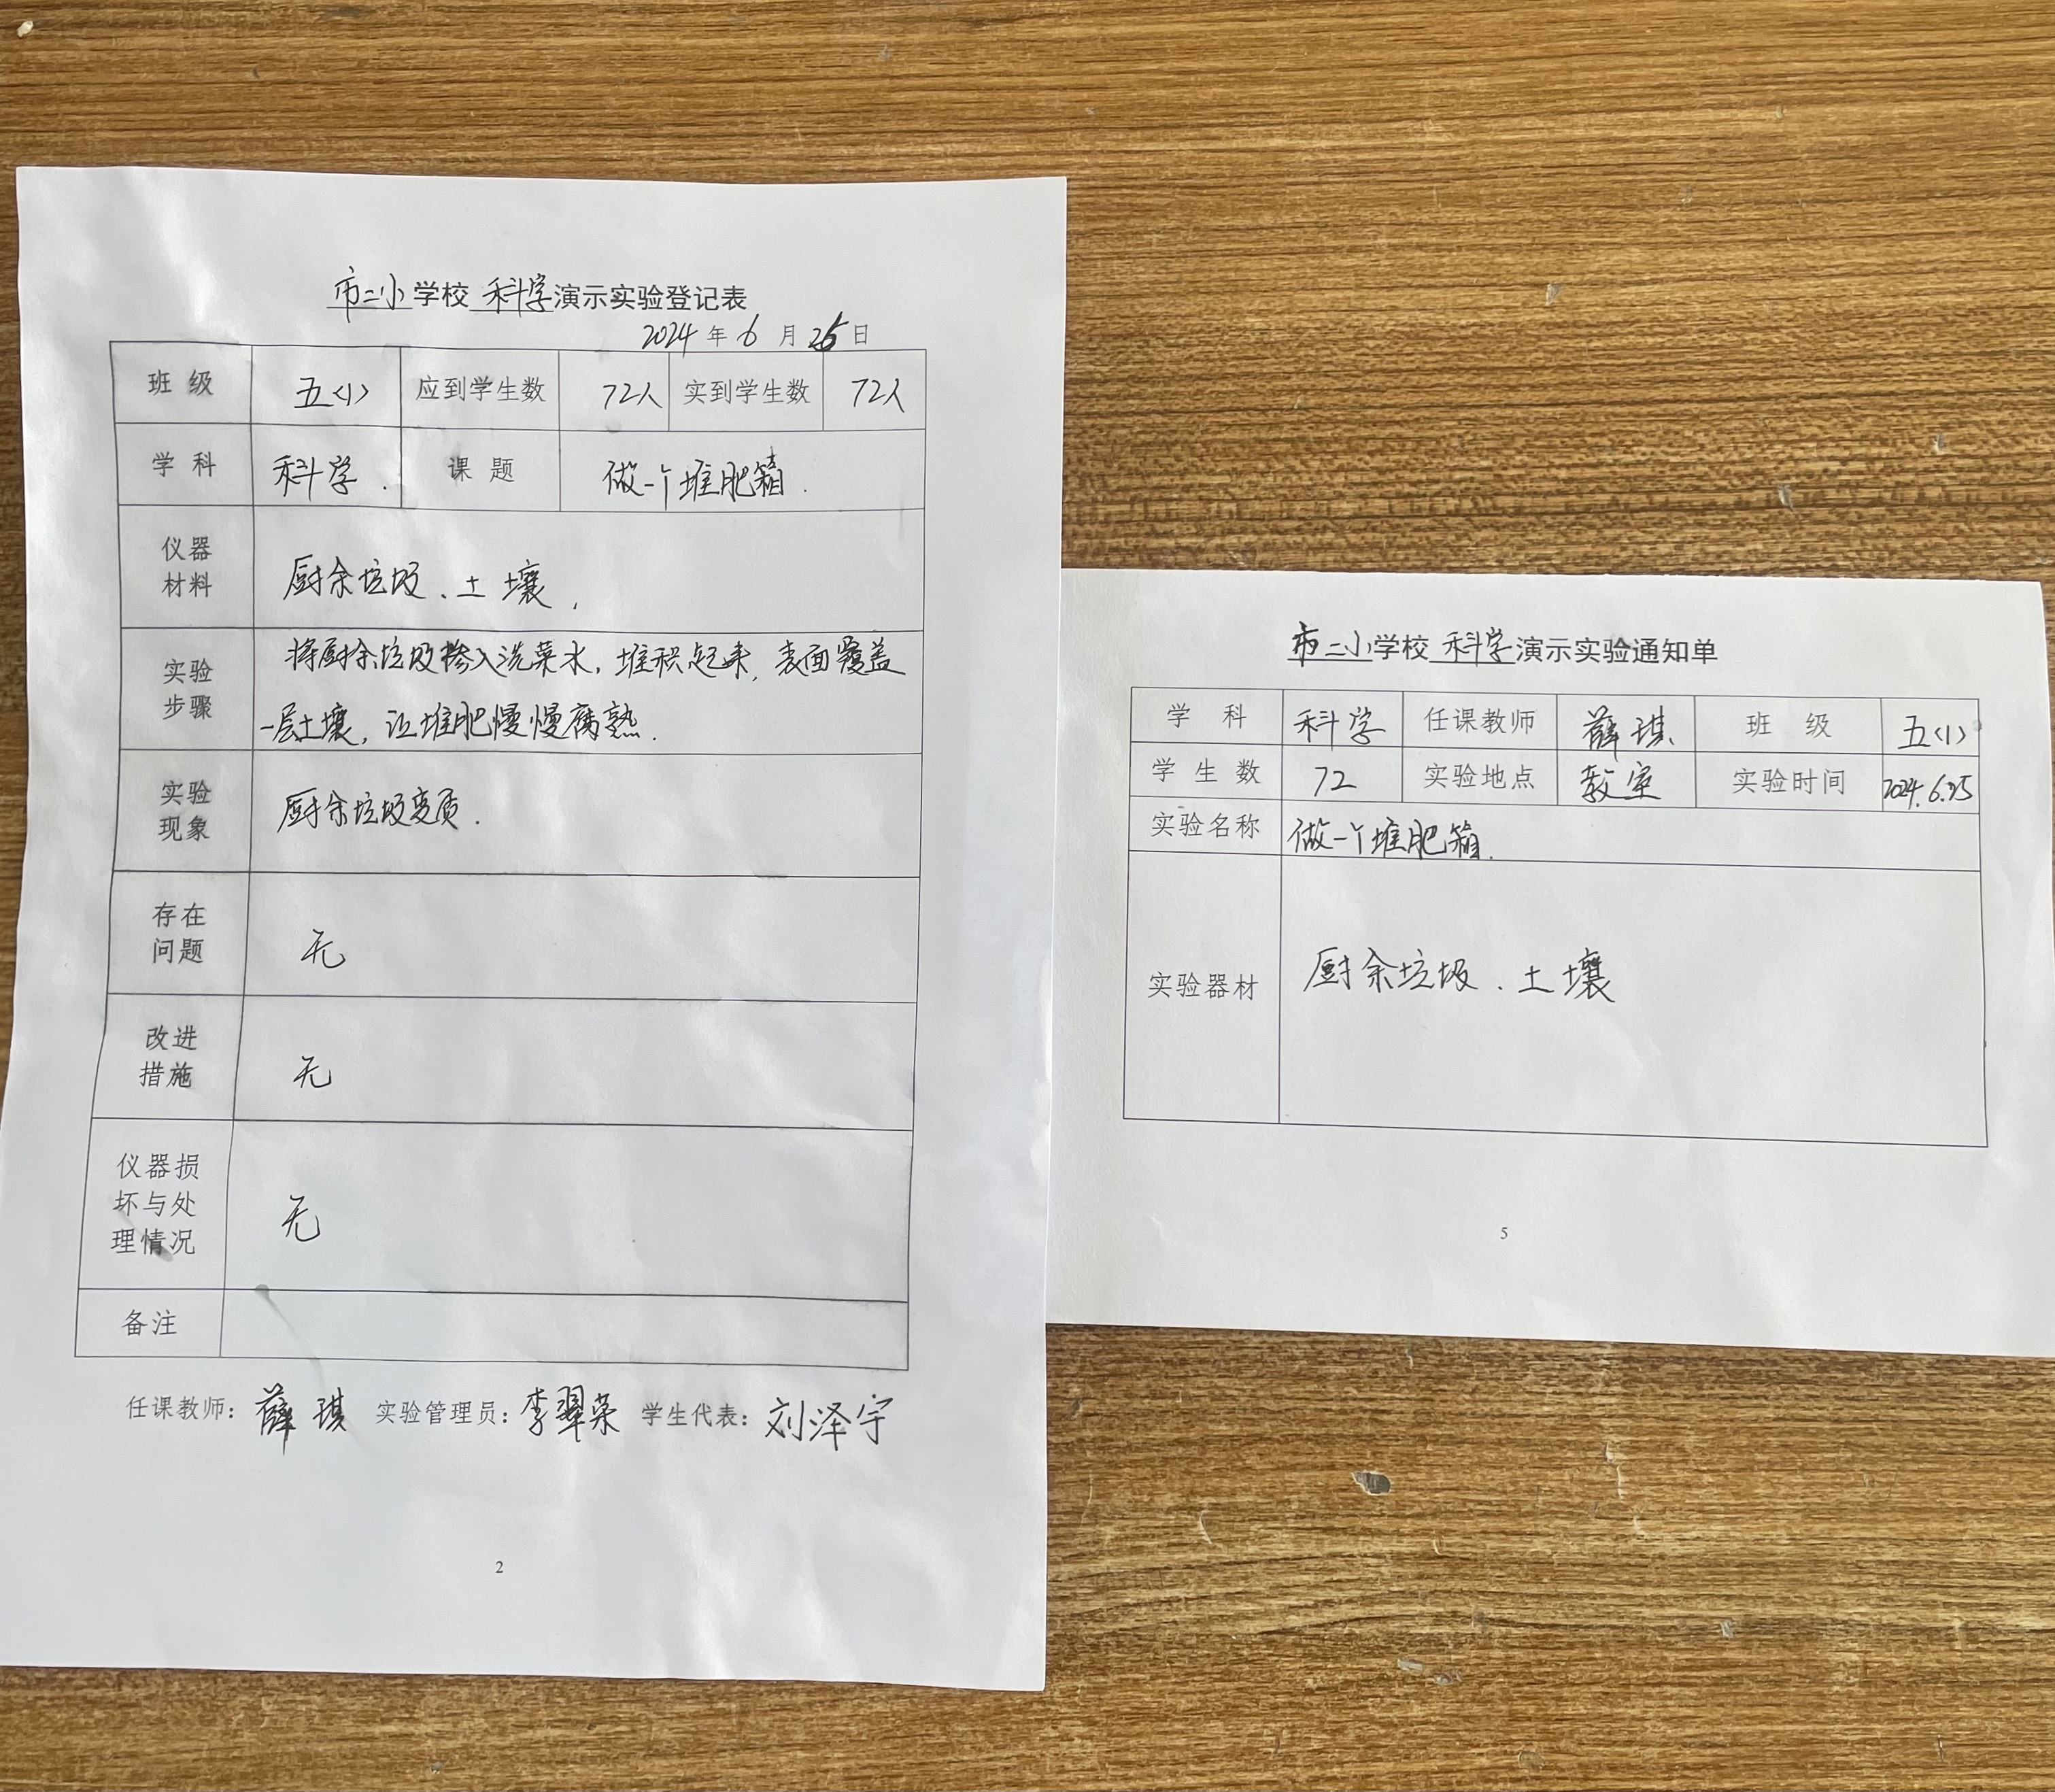 市二小学校 科学演示实验登记表
2024年6月25日
班级 五(1) 应到学生数 72人 实到学生数 72人
学科 科学. 课题 做一个堆肥箱.
仪器
材料
厨余垃圾、土壤.
实验
步骤
将厨余垃圾掺入洗菜水,堆积起来,表面覆盖
一层土壤,让堆肥慢慢腐熟.
实验
现象
厨余垃圾变质.
存在
问题
无
改进
措施
无
仪器损
坏与处
理情况
无
备注
任课教师:薛琪 实验管理员:李翠荣 学生代表:刘泽宇
2
市二小学校 科学演示实验通知单
学科 科学 任课教师 薛琪 班级 五(1)
学生数 72 实验地点 教室 实验时间 2024.6.25
实验名称 做一个堆肥箱.
实验器材 厨余垃圾、土壤
5